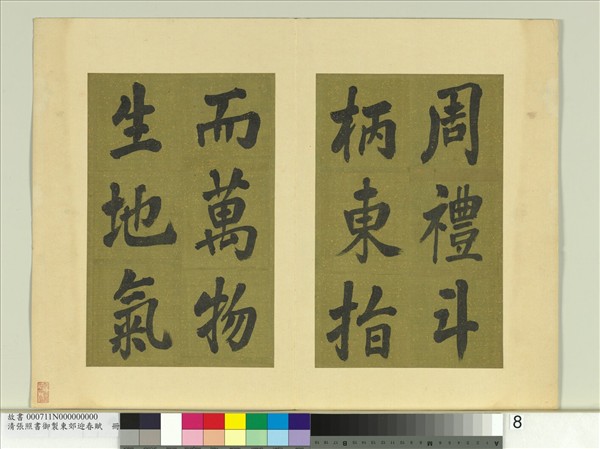 周禮斗
柄東指
而萬物
生地氣
故書 000711N000000000
清張照書御製東郊迎春賦 冊
8